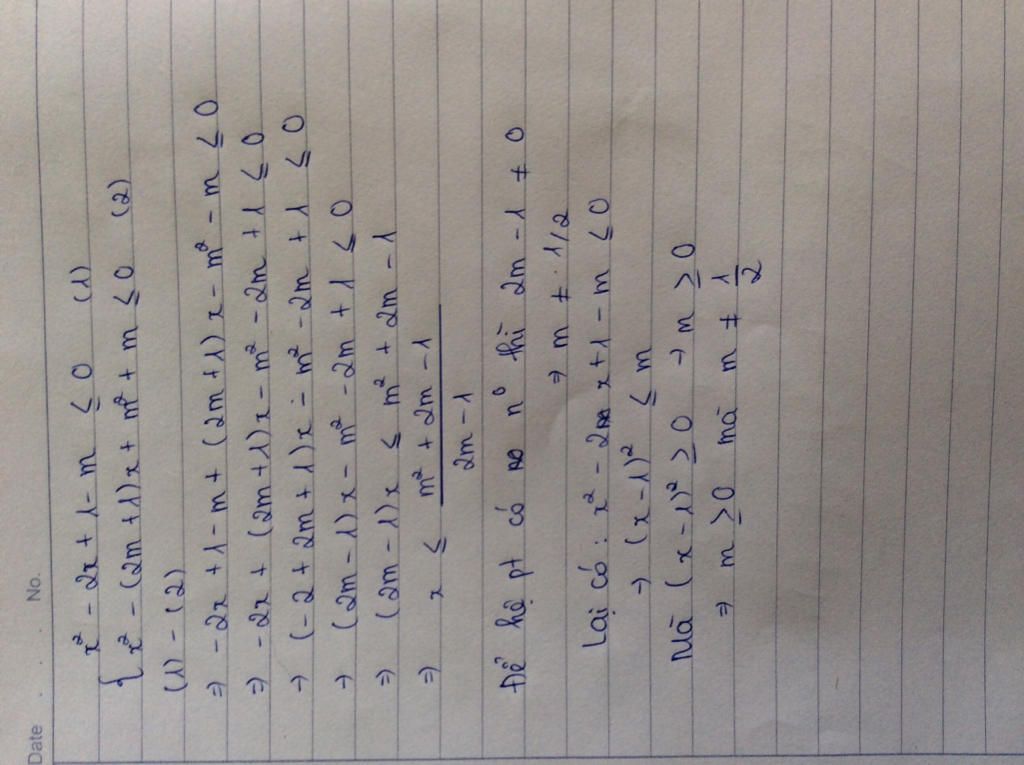 Date No.
x² - 2x + 1 - m ≤ 0 (1)
{ x² - (2m+1)x + m² + m ≤ 0 (2)
(1) - (2)
⇒ -2x + 1 - m + (2m+1)x - m² - m ≤ 0
⇒ -2x + (2m+1)x - m² - 2m + 1 ≤ 0
→ (-2 + 2m + 1)x - m² - 2m + 1 ≤ 0
→ (2m - 1)x - m² - 2m + 1 ≤ 0
⇒ (2m - 1)x ≤ m² + 2m - 1
⇒ x ≤ (m² + 2m - 1)/(2m - 1)
Để hệ pt có n⁰ thì 2m - 1 ≠ 0
⇒ m ≠ 1/2
Lại có : x² - 2x + 1 - m ≤ 0
→ (x - 1)² ≤ m
Mà (x - 1)² ≥ 0 → m ≥ 0
⇒ m ≥ 0 mà m ≠ 1/2